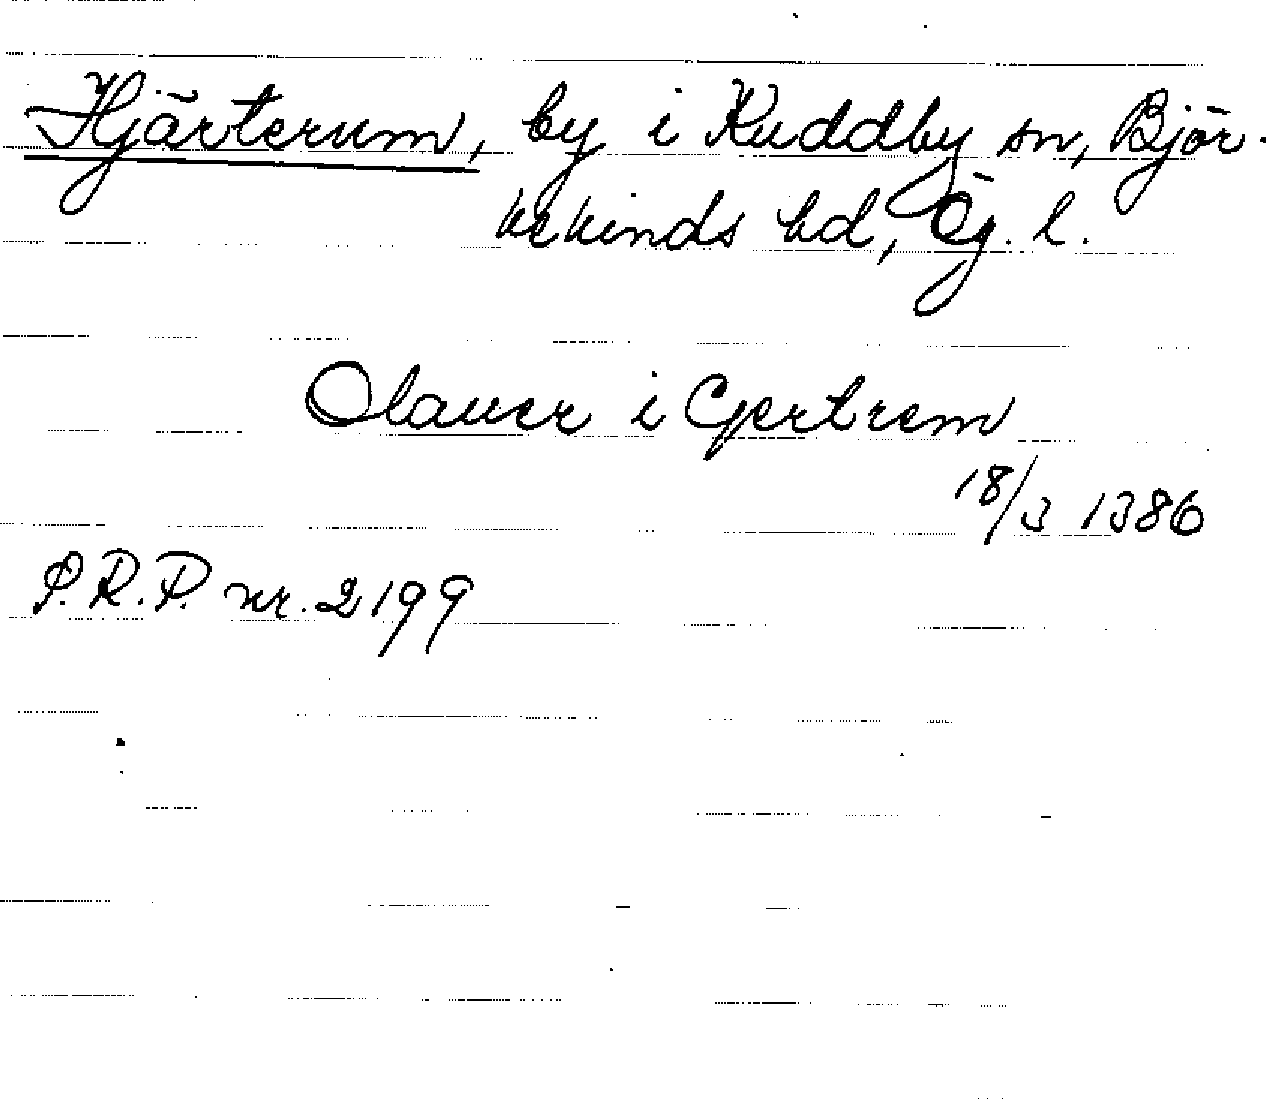 Hjärterum, by i Kuddby sn, Björ-
kekinds hd, Ög. l.
Olauer i Gertrem
18/3 1386
P.R.P. nr. 2199